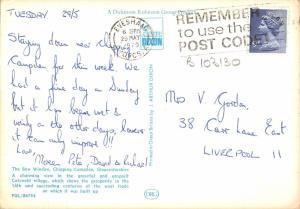 TUESDAY 29/5
A Dickinson Robinson Group Product
EVESHAM
29 MAY
1979
WORCS
REMEMBER
to use the
POST CODE
DIXON
B 102130
Staying down near Chipping
Campden for this week. We
had a fine day on Sunday
but it has been wet &
windy the other days, however
it can only improve!!
Love,
Peter, David & Richard
Mrs V. Gordon,
38 Carr Lane East
LIVERPOOL 11
Printed in Great Britain by J. ARTHUR DIXON
The Bow Window, Chipping Campden, Gloucestershire
A charming view in the graceful and unspoilt
Cotswold village, which shows the prosperity in the
14th and succeeding centuries of the wool trade
or which it was a centre
DRG